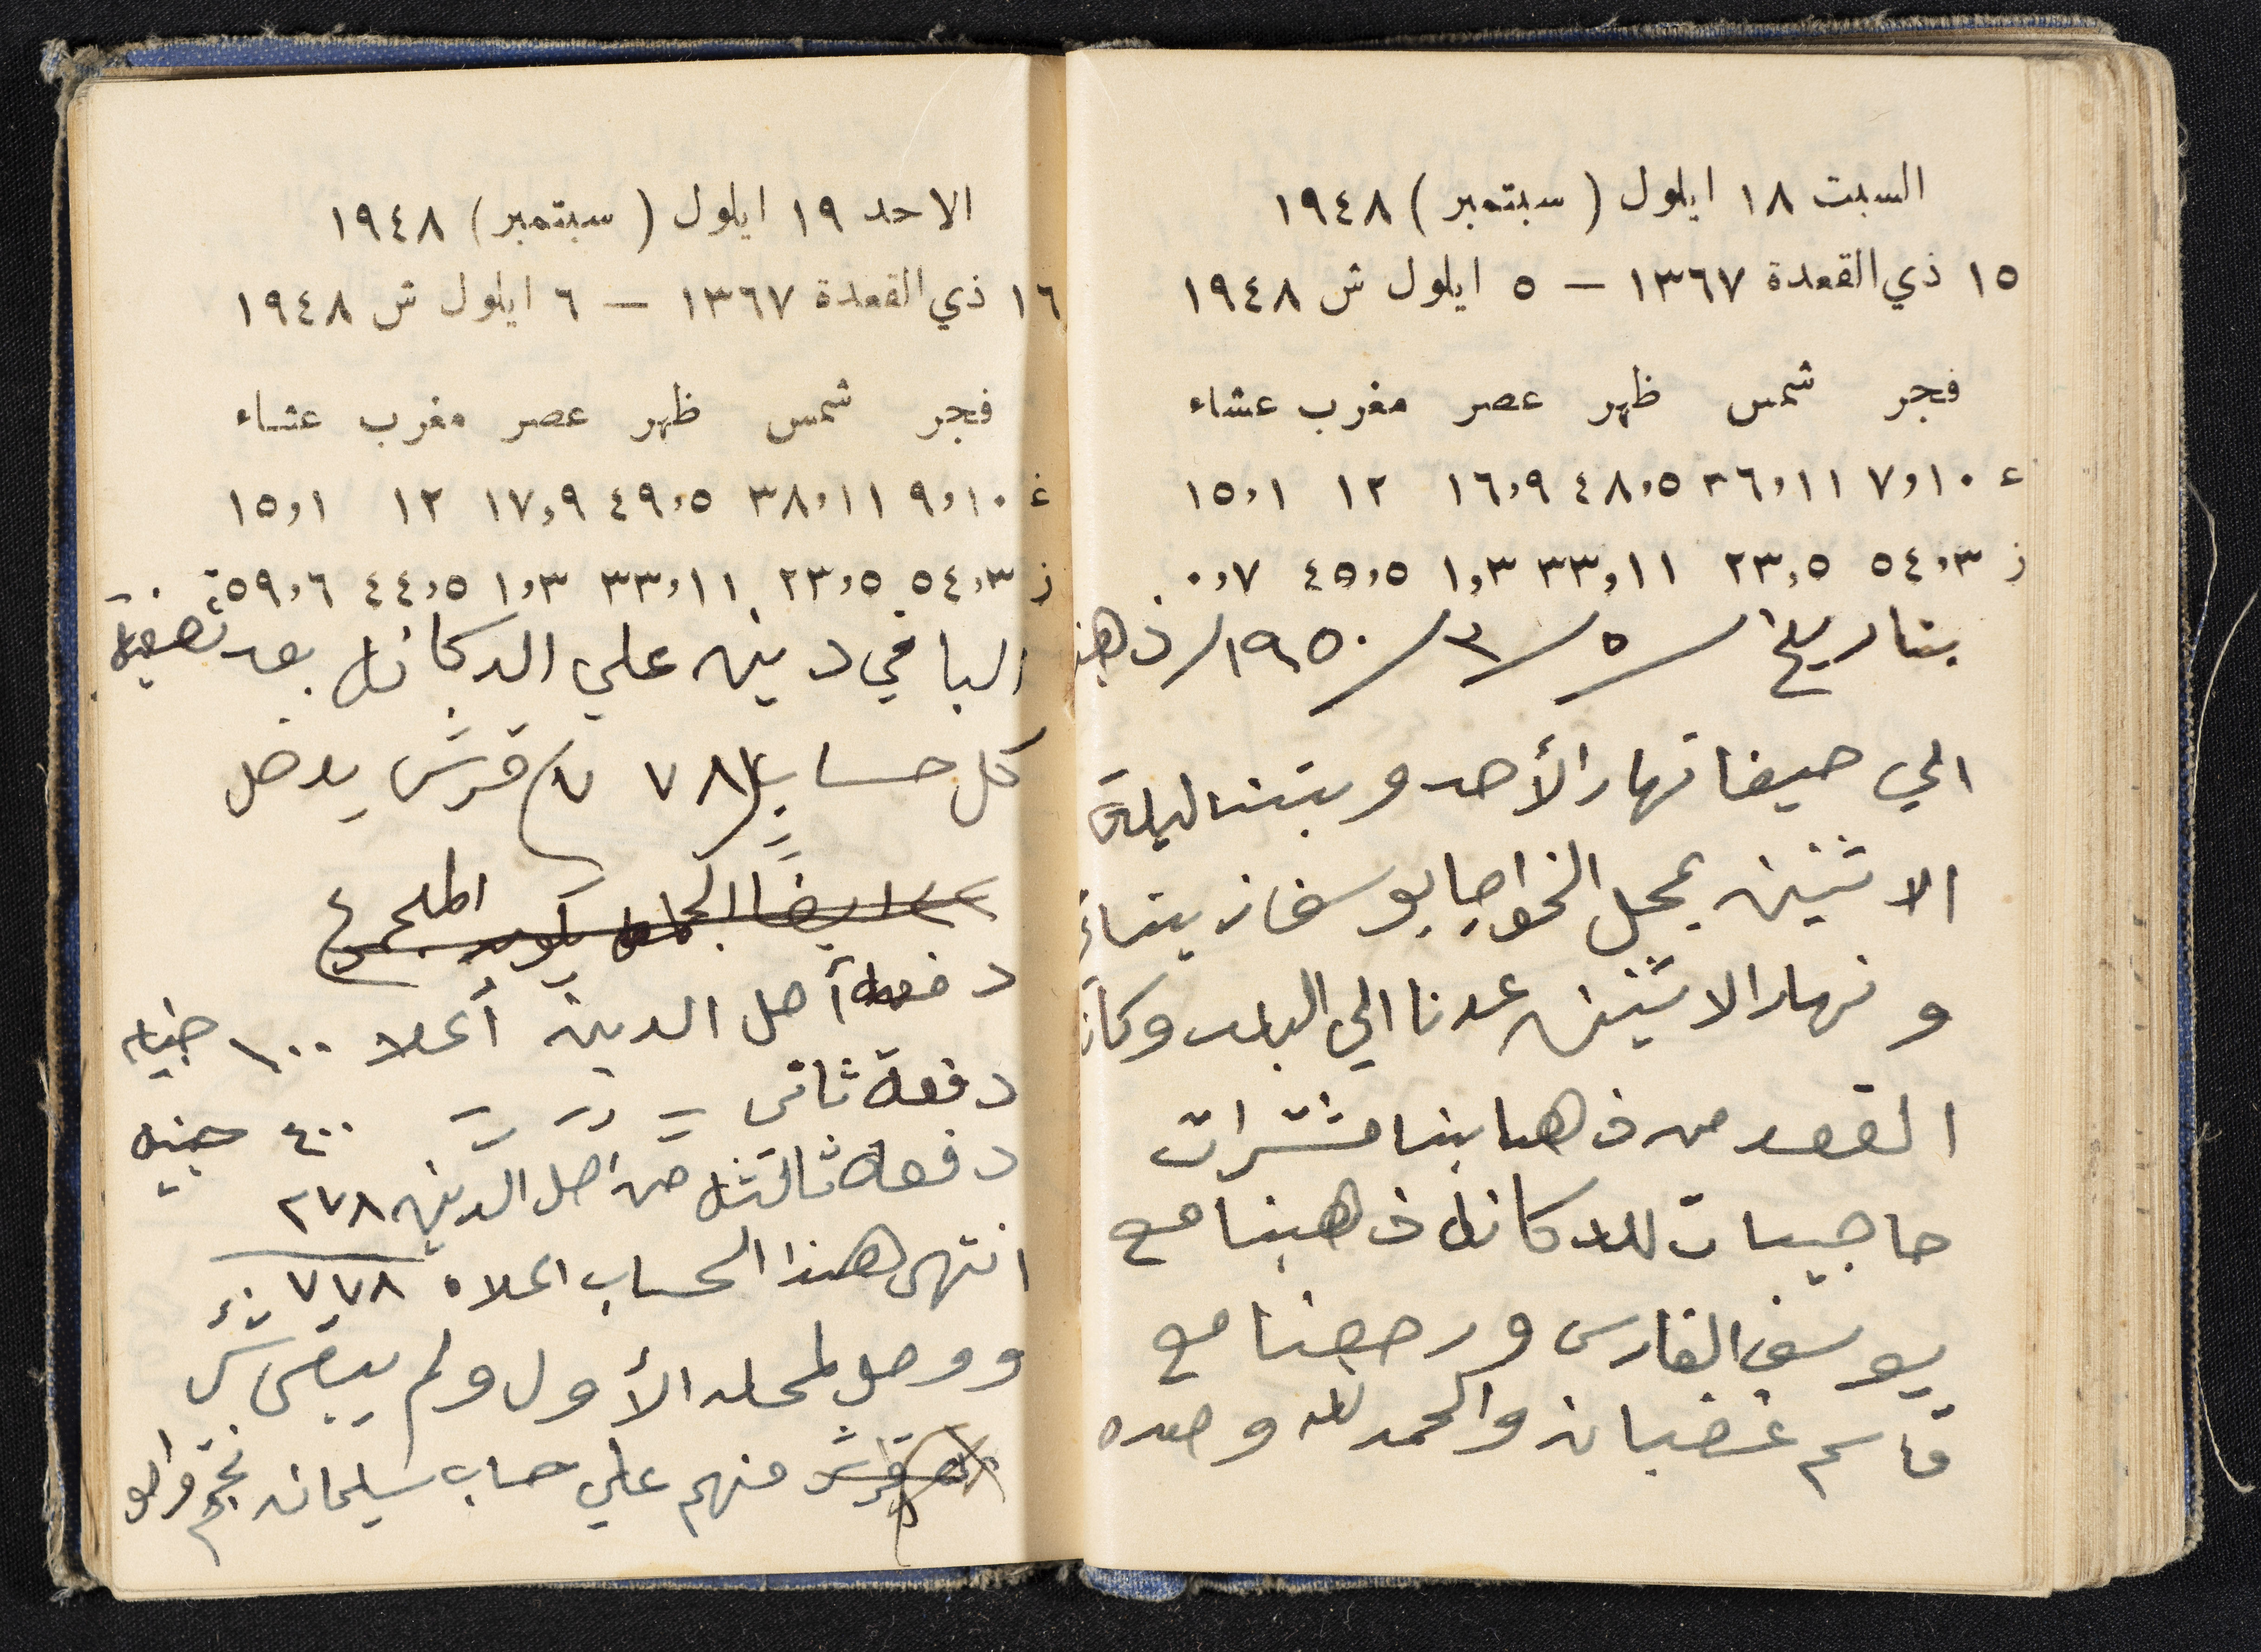 السبت ١٨ ايلول ( سبتمبر ) ١٩٤٨
١٥ ذي القعدة ١٣٦٧ — ٥ ايلول ش ١٩٤٨
فجر شمس ظهر عصر مغرب عشاء
ع ٧٫١٠ ٣٦٫١١ ٤٨٫٥ ١٦٫٩ ١٢ ١٥٫١
ز ٥٤٫٣ ٢٣٫٥ ٣٣٫١١ ١٫٣ ٤٥٫٥ ٠٫٧
بتاريخ ٥/٣/١٩٥٠/ ذهبنا
الي حيفا نهار الأحد وبتنا ليلة
الاثنين بمحل الخواجا يوسف
ونهار الاثنين عدنا الي البلد وكان
القصد من ذهابنا مشترات
حاجيات للدكانه ذهبنا مع
يوسف الفارس ورجعنا مع
قاسم غضبان والحمد لله وحده
الاحد ١٩ ايلول ( سبتمبر ) ١٩٤٨
١٦ ذي القعدة ١٣٦٧ — ٦ ايلول ش ١٩٤٨
فجر شمس ظهر عصر مغرب عشاء
غ ٩٫١٠ ٣٨٫١١ ٤٩٫٥ ١٧٫٩ ١٢ ١٥٫١
ز ٥٤٫٣ ٢٣٫٥ ٣٣٫١١ ١٫٣ ٤٤٫٥ ٥٩٫٦
الباقي دين علي الدكانه بعد تصفية
كل حساب ٧٧٨ قرش
ايضاً
دفعه أصل الدين أعلا ١٠٠ جنيه
دفعة ثاني = = = ٤٠٠ جنيه
دفعه ثالثه من اصل الدين ٢٧٨
انتهى هذا الحساب اعلاه ٧٧٨
ووصل لمحله الأول ولم يبقى شئ
قرش منهم علي حساب سليمان نجم